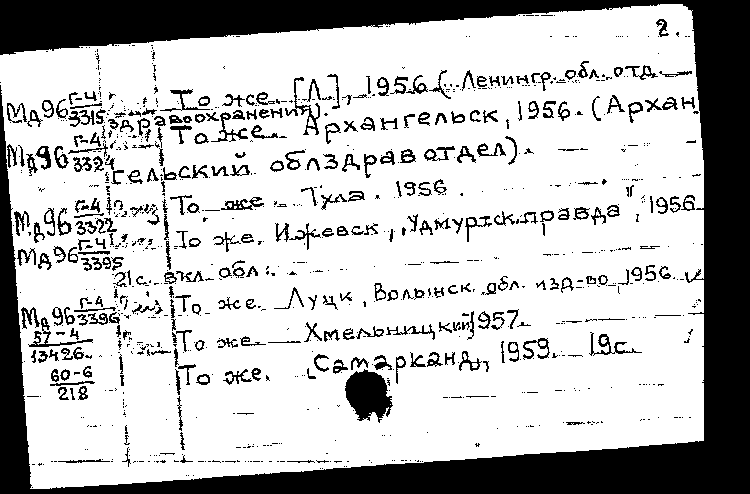 2.
Мд96 Г-4/3315 То же. [Л.], 1956 (Ленингр. обл. отд.
здравоохранения).
Мд96 Г-4/3324 То же. Архангельск, 1956. (Архан
гельский облздравотдел).
Мд96 Г-4/3322 2 экз То же. Тула. 1956.
Мд96 Г-4/3395 То же. Ижевск, "Удмуртск. правда", 1956
21с. вкл. обл.
Мд96 Г-4/3396 2 экз То же. Луцк, Волынск. обл. изд-во, 1956
57-4/13426. То же. Хмельницкий 1957.
60-6/218 То же. "Самарканд", 1959. 19с.